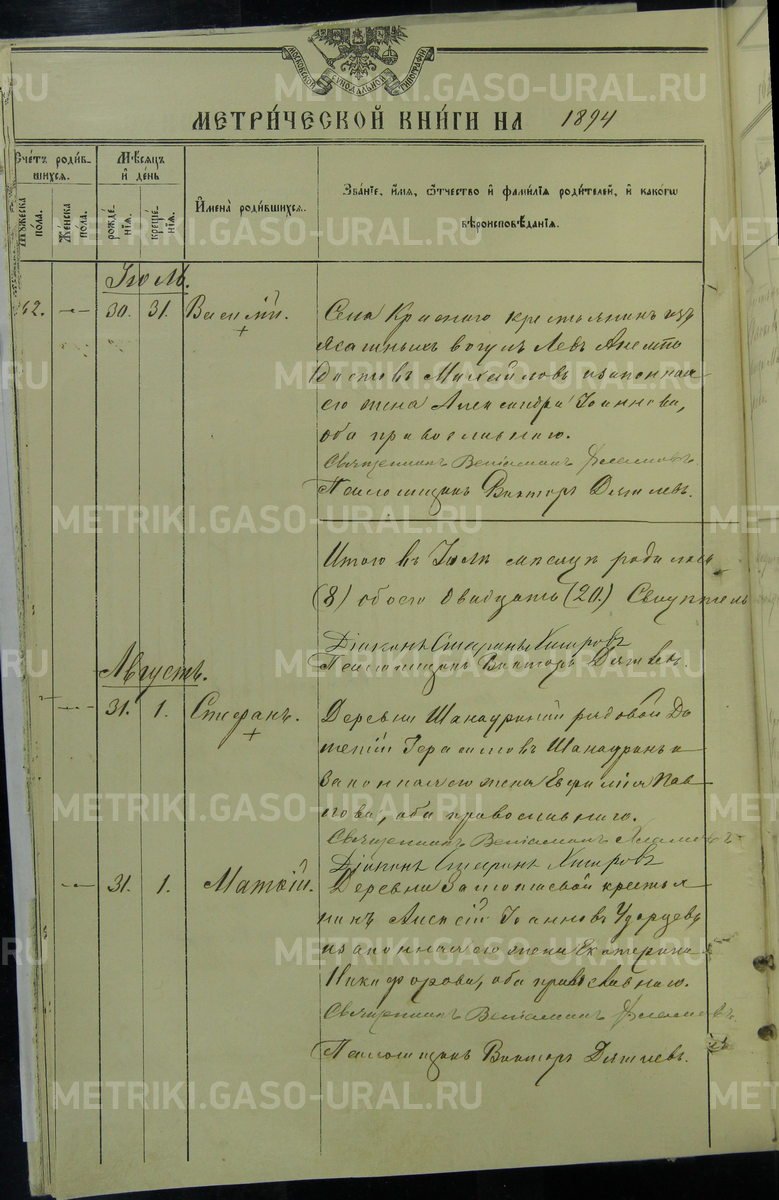 МОСКОВСКОЙ СУНОДАЛЬНОЙ ТИПОГРАФІИ
МЕТРИ́ЧЕСКОЙ КНИ́ГИ НА 1894
Счётъ роди́в-шихся.
Мѣ́сяцъ и де́нь
Имена̀ роди́вшихся.
Зва́ніе, и́мя, ѻ҆́тчество и фами́лія роди́телей, и како́гѡ вѣроисповѣ́данія.
Му́жеска по́ла.
Же́нска по́ла.
рожде́-нія.
креще́-нія.
Іюль.
62. — 30. 31. Василій.
Села Краснаго крестьянинъ изъ
ясашныхъ вогулъ Левъ
Михайловъ и законная
его жена Александра Іоаннова,
оба православнаго.
Священникъ Веніаминъ
Псаломщикъ Викторъ Дягилевъ.
Итого въ Іюлѣ мѣсяцѣ родилось
(8) обоего двадцать (20.)
Діаконъ Стефанъ Хитровъ
Псаломщикъ Викторъ Дягилевъ.
Августъ.
— 31. 1. Стефанъ.
Деревни рядовой
Герасимовъ и
законная его жена Евфимія Пав-
лова, оба православнаго.
Священникъ Веніаминъ
Діаконъ Стефанъ Хитровъ
— 31. 1. Матѳій.
Деревни крестья-
нинъ Алексій Іоанновъ Ударцевъ
и законная его жена Екатерина
Никифорова, оба православнаго.
Священникъ Веніаминъ
Псаломщикъ Викторъ Дягилевъ.
METRIKI.GASO-URAL.RU